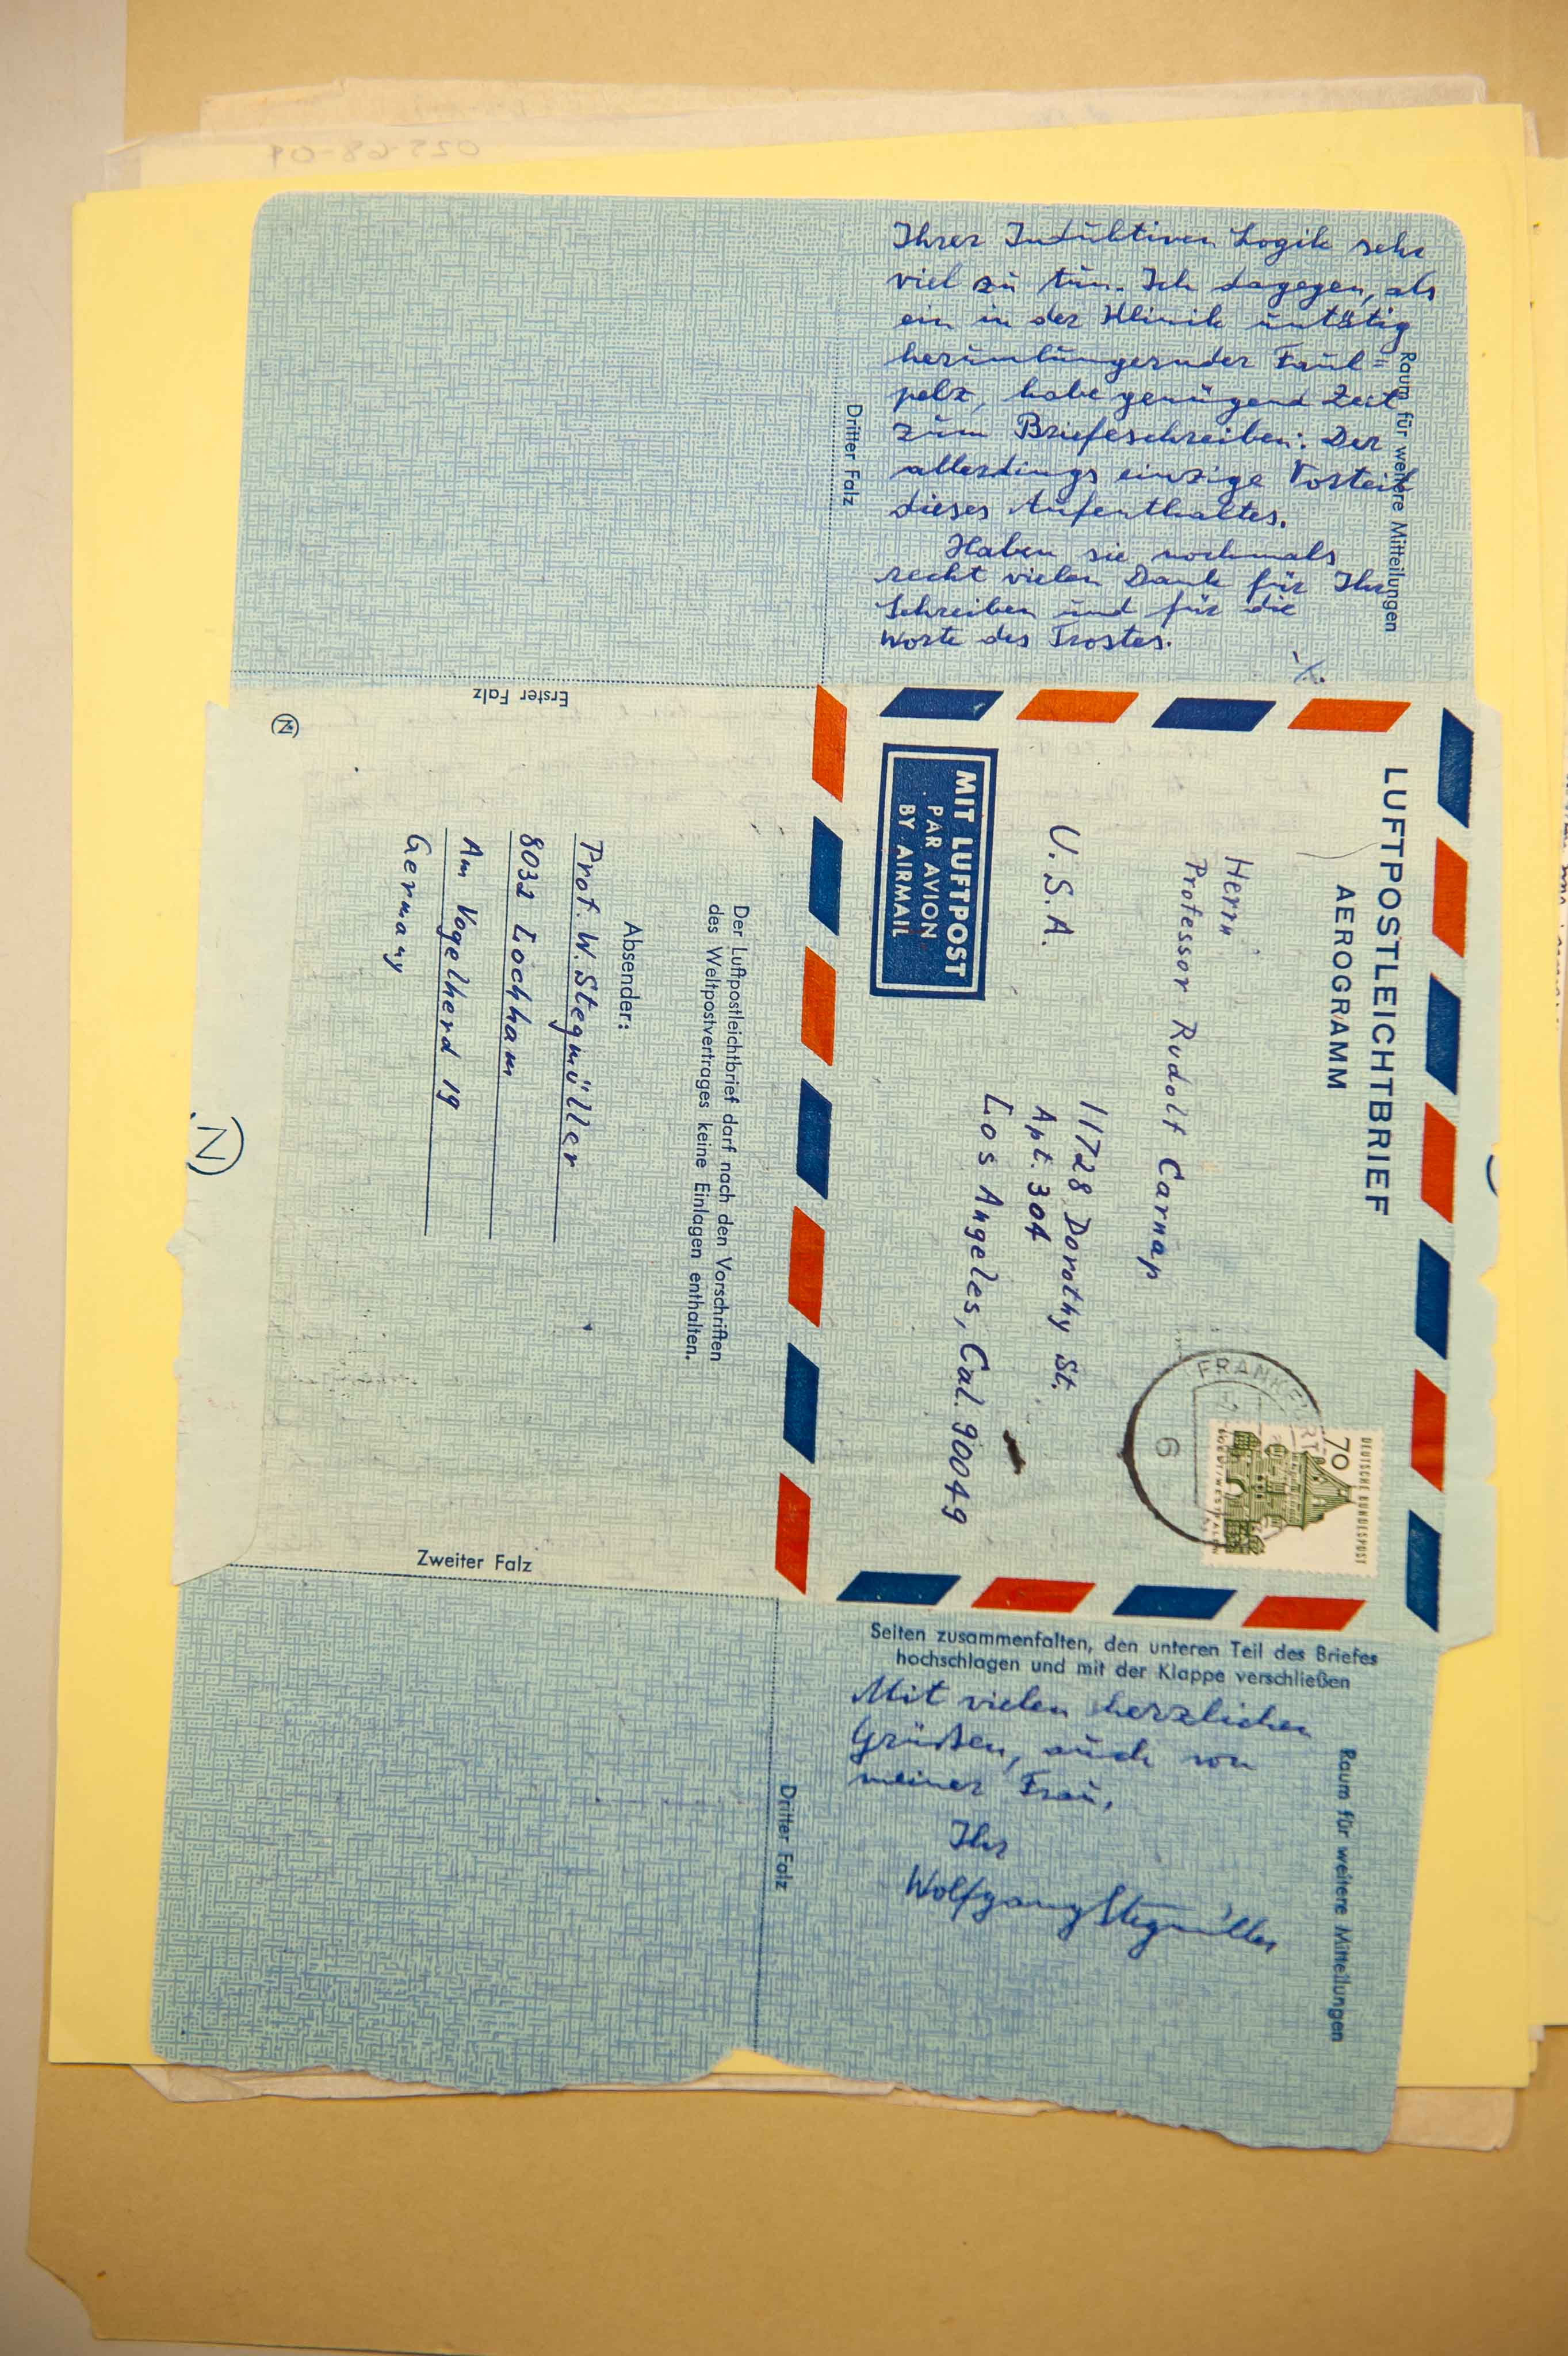 025-68-09
Ihrer Induktiven Logik sehr
viel zu tun. Ich dagegen, als
ein in der Klinik untätig
herumlungernder Faul=
pelz, habe genügend Zeit
zum Briefeschreiben: Der
allerdings einzige Vorteil
dieses Aufenthaltes.
Haben sie nochmals
recht vielen Dank für Ihr
Schreiben und für die
Worte des Trostes.
./.
Raum für weitere Mitteilungen
Dritter Falz
Erster Falz
LUFTPOSTLEICHTBRIEF
AEROGRAMM
Herrn
Professor Rudolf Carnap
11728 Dorothy St.
Apt. 304
Los Angeles, Cal. 90049
U.S.A.
MIT LUFTPOST
PAR AVION
BY AIRMAIL
DEUTSCHE BUNDESPOST
70
FRANKFURT
6
Der Luftpostleichtbrief darf nach den Vorschriften
des Weltpostvertrages keine Einlagen enthalten.
Absender:
Prof. W. Stegmüller
8032 Lochham
Am Vogelherd 19
Germany
N
N
Zweiter Falz
Seiten zusammenfalten, den unteren Teil des Briefes
hochschlagen und mit der Klappe verschließen
Mit vielen herzlichen
Grüßen, auch von
meiner Frau,
Ihr
Wolfgang Stegmüller
Raum für weitere Mitteilungen
Dritter Falz